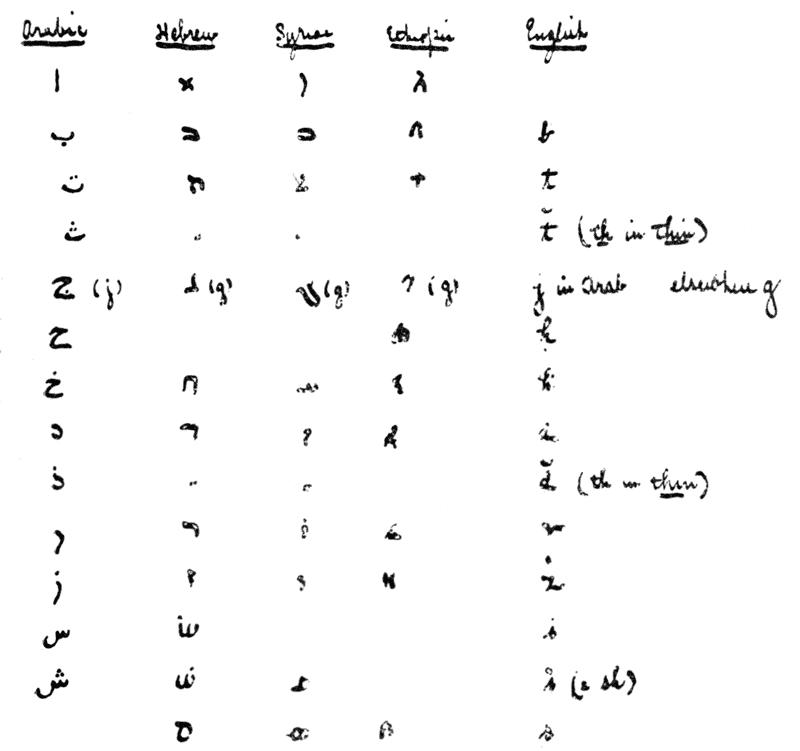 Arabic Hebrew Syriac Ethiopic English
ا א ܐ አ
ب ב ܒ በ b
ت ת ܬ ተ t
ث " " t̆ (th in thin)
ج (j) ג (g) ܓ (g) ገ (g) j in Arab elsewhere g
ح ሐ ḥ
خ ח ܚ ኀ
د ד ܕ ደ
ذ " " d̆ (th in then)
ر ר ܪ ረ r
ز ז ܙ ዘ ż
س שׂ
ش שׁ ܫ (= sh)
ס ܣ s